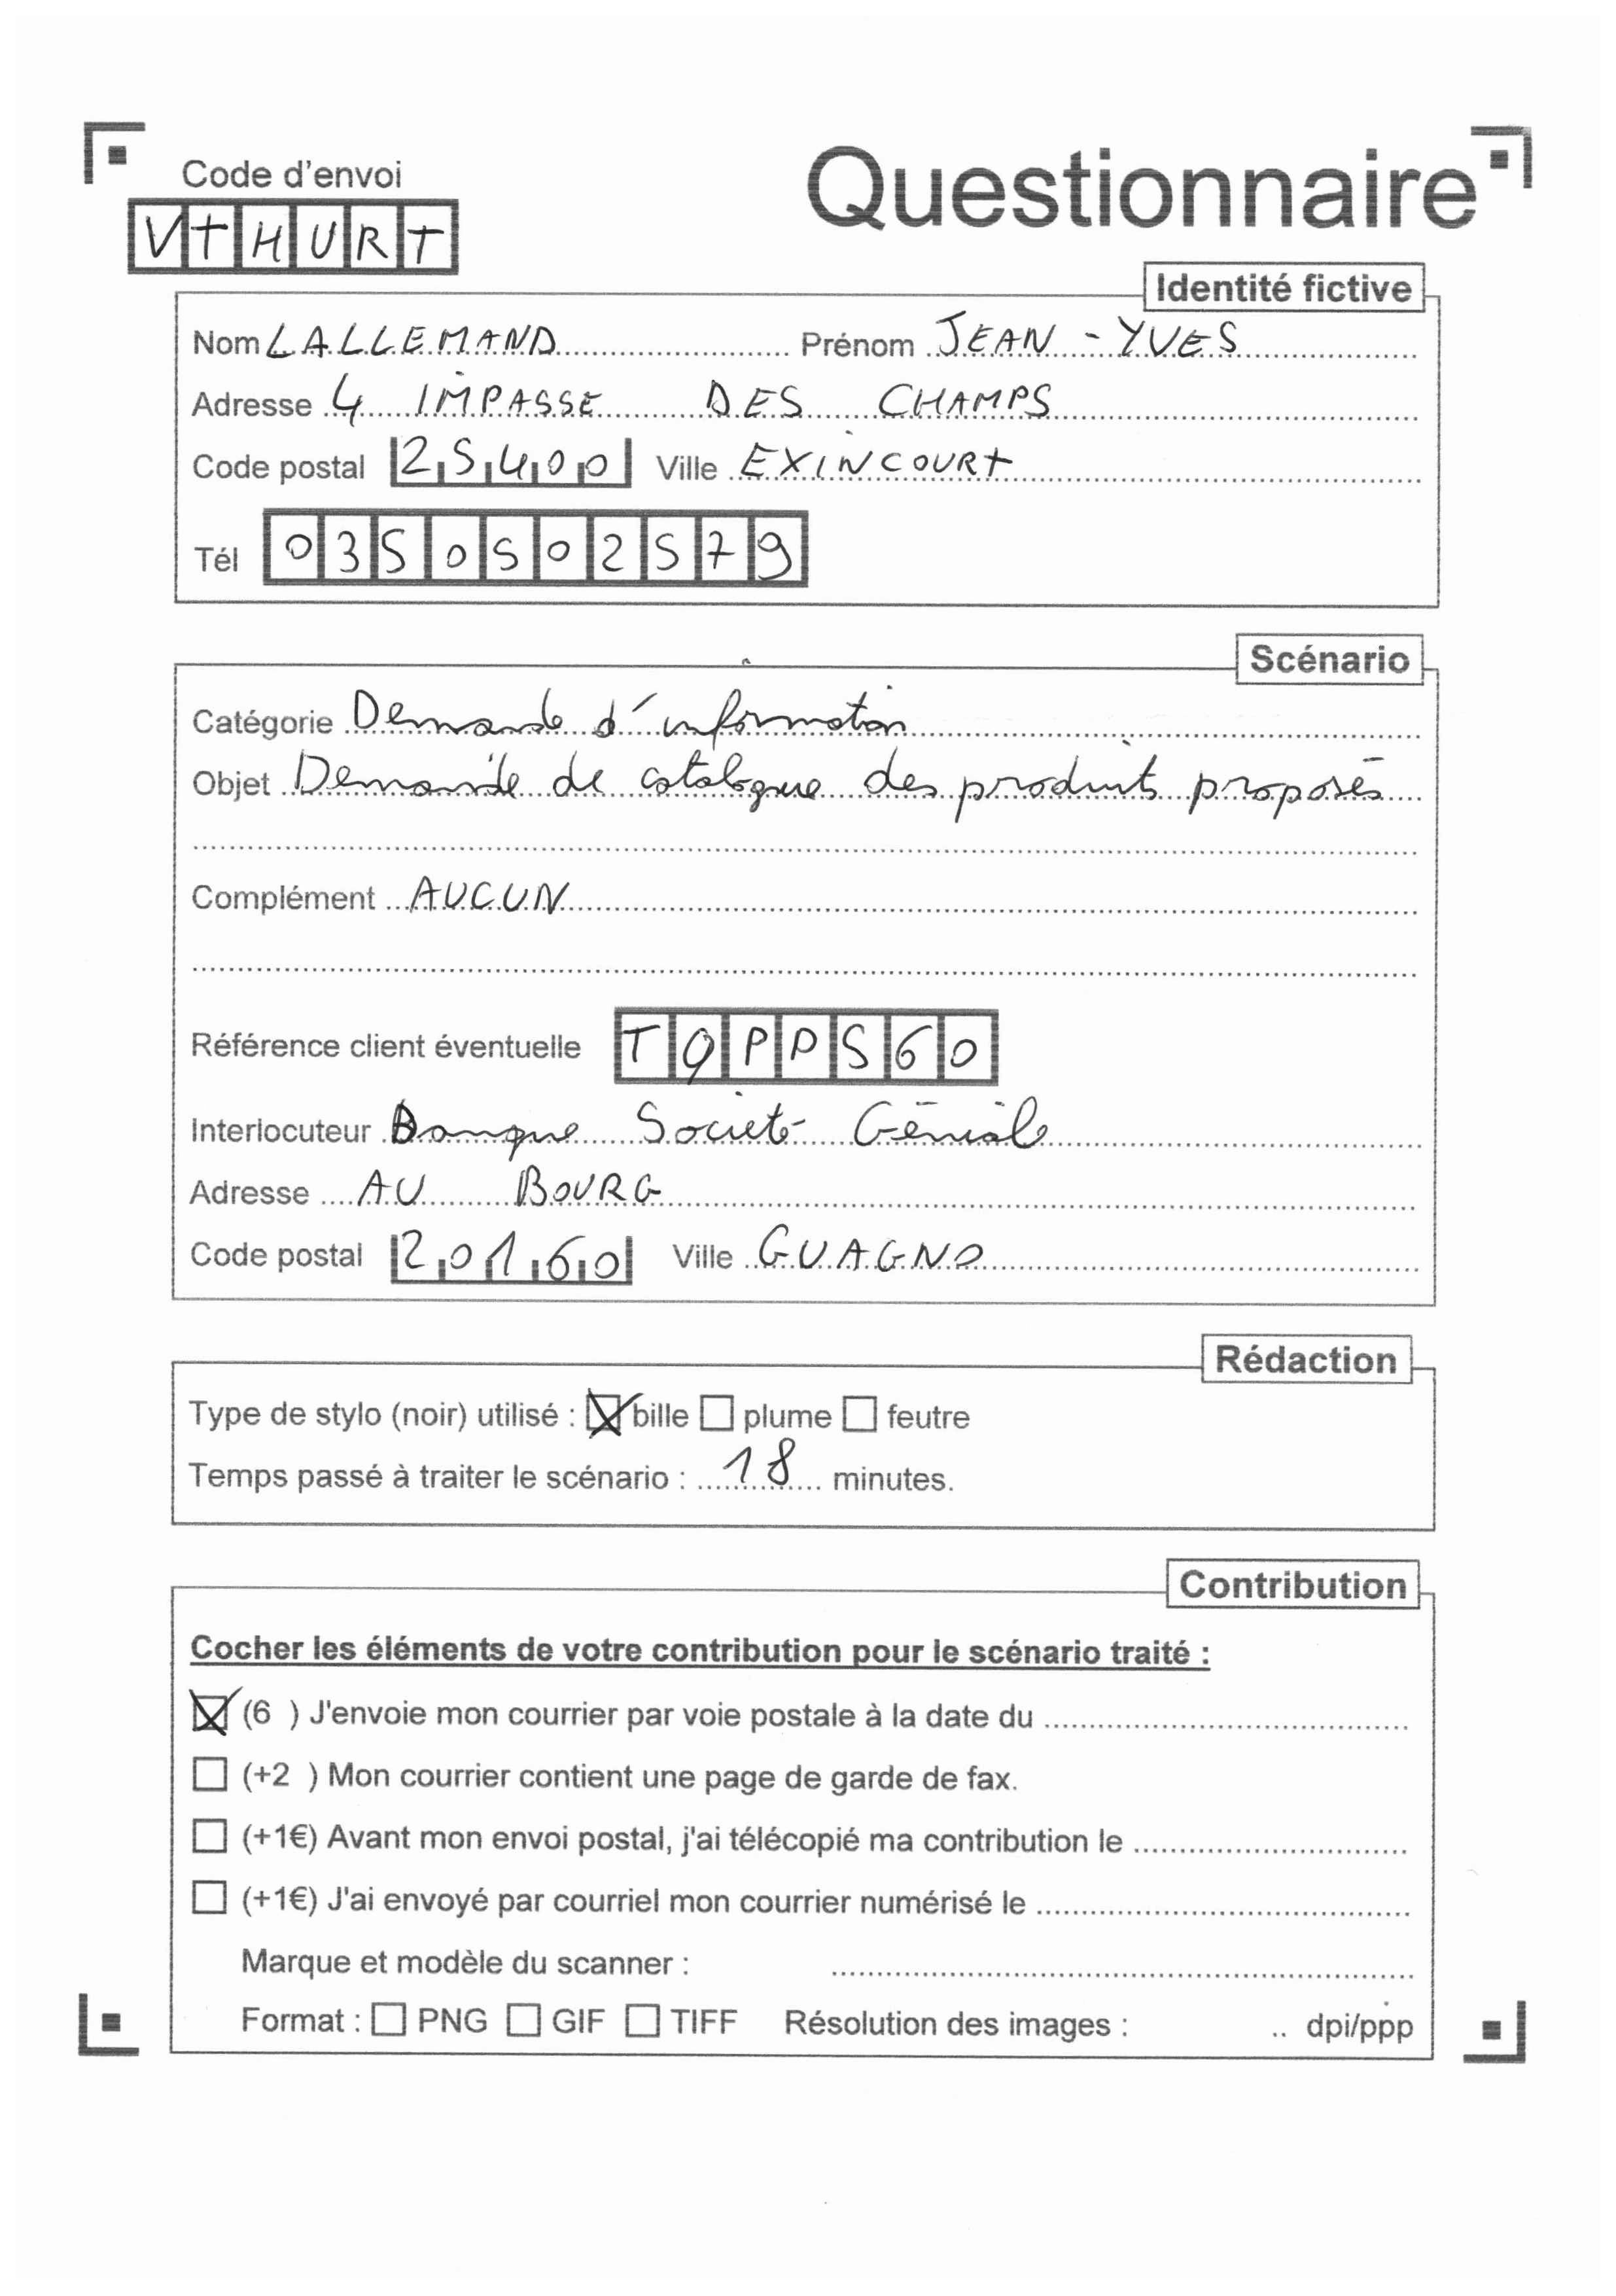 Code d'envoi
Questionnaire
VTHURT
Identité fictive
Nom LALLEMAND Prénom JEAN-YVES
Adresse 4 IMPASSE DES CHAMPS
Code postal 25400 Ville EXINCOURT
Tél 0350502579
Scénario
Catégorie Demande d'information
Objet Demande de catalogue des produits proposés
Complément AUCUN
Référence client éventuelle
Interlocuteur Banque Société Géniale
Adresse AU BOURG
Code postal 20160 Ville GUAGNO
Rédaction
Type de stylo (noir) utilisé : bille plume feutre
Temps passé à traiter le scénario : 18 minutes.
Contribution
Cocher les éléments de votre contribution pour le scénario traité :
(6 ) J'envoie mon courrier par voie postale à la date du
(+2 ) Mon courrier contient une page de garde de fax.
(+1€) Avant mon envoi postal, j'ai télécopié ma contribution le
(+1€) J'ai envoyé par courriel mon courrier numérisé le
Marque et modèle du scanner :
Format : PNG GIF TIFF Résolution des images : .. dpi/ppp